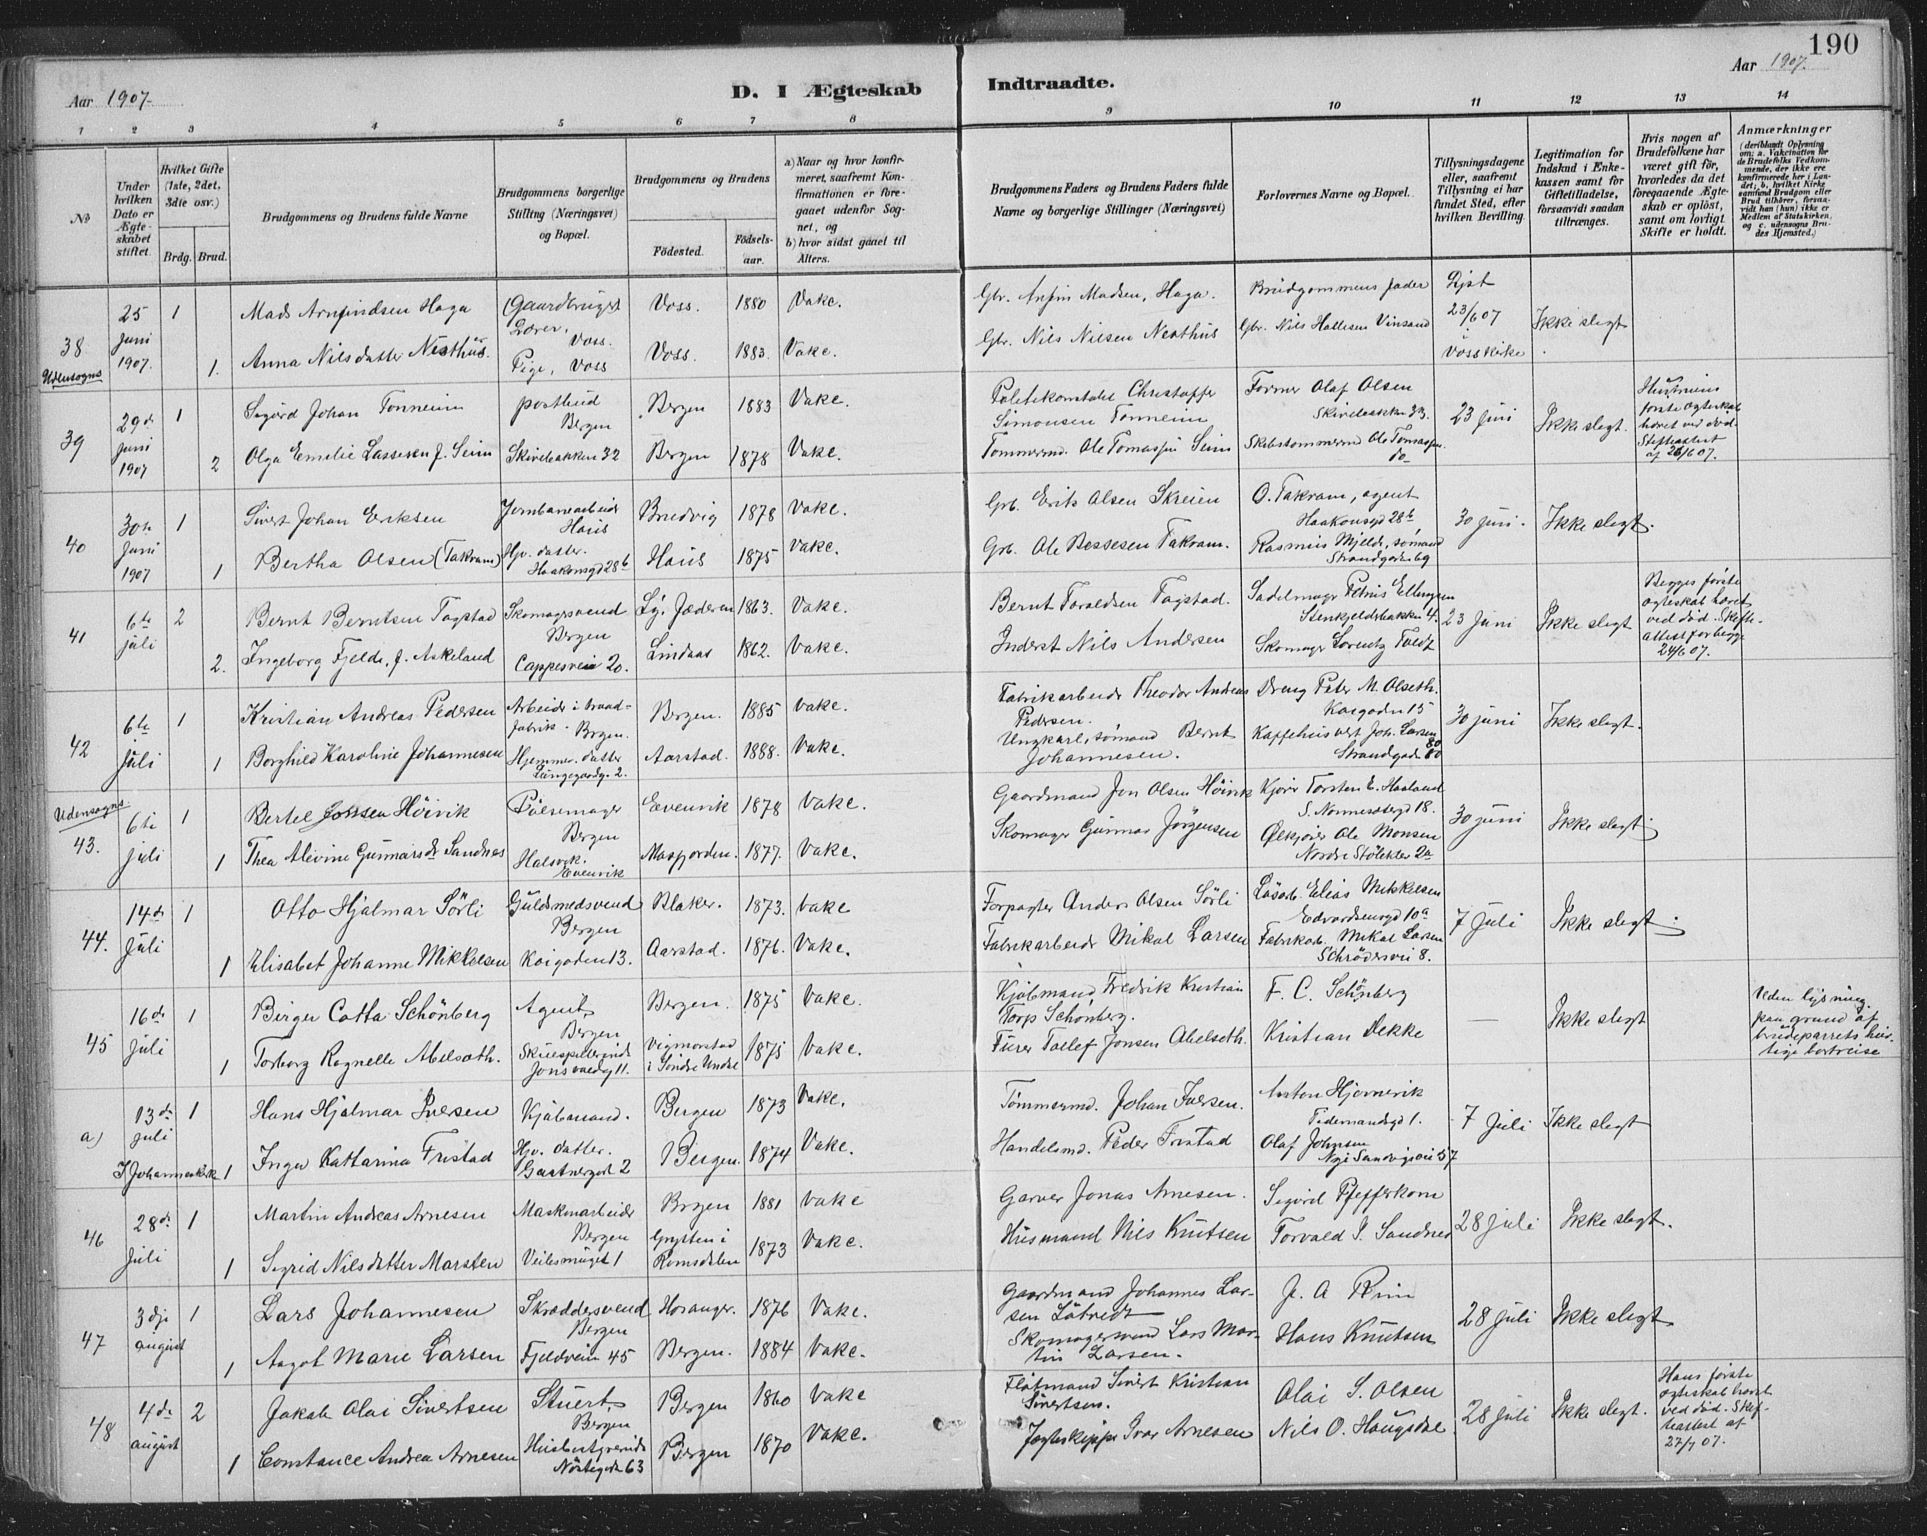 190
Aar 1907. D. I Ægteskab Indtraadte. Aar 1907.
1 2 3 4 5 6 7 8 9 10 11 12 13 14
No
Under hvilken Dato er Ægteskabet stiftet.
Hvilket Gifte (1ste, 2det, 3die osv.)
Brdg. Brud.
Brudgommens og Brudens fulde Navne
Brudgommens borgerlige Stilling (Næringsvei) og Bopæl.
Brudgommens og Brudens
Födested. Födselsaar.
a) Naar og hvor konfirmeret, saafremt Konfirmationen er foregaaet udenfor Sognet, og
b) hvor sidst gaaet til Alters.
Brudgommens Faders og Brudens Faders fulde Navne og borgerlige Stillinger (Næringsvei)
Forlovernes Navne og Bopæl.
Tillysningsdagene eller, saafremt Tillysning ei har fundet Sted, efter hvilken Bevilling.
Legitimation for Indskud i Enkekassen samt for Giftetilladelse, forsaavidt saadan tiltrænges.
Hvis nogen af Brudefolkene har været gift för, hvorledes da det foregaaende Ægteskab er oplöst, samt om lovligt Skifte er holdt.
Anmærkninger
(deriblandt Oplysning om: a. Vakcination for de Brudefolks Vedkommende, der ikke ere konfirmerede her i Landet; b. hvilket Kirkesamfund Brudgom eller Brud tilhörer, forsaavidt han (hun) ikke er Medlem af Statskirken, og c. udensogns Brudes Hjemsted.)
38 Udensogns 25 juni 1907. 1 Mads Arnfindsen Haga Gaardbruger Voss. Voss. 1880 Vake. Gbr. Anfin Madsen, Haga. Brudgommens fader 23/6 07 Voss Kirke Ikke slegt
1. Anna Nilsdatter Nesthus. Pige, Voss Voss. 1883. Vake. Gbr. Nils Nilsen Nesthus Gbr. Nils Hallesen Vinsand
39 29de juni 1907 1 Sigurd Johan Tonneim postbud Bergen Bergen 1883 Vake. Politikonstabel Christoffer Simonsen Tonneim Former Olaf Olsen Skivebakken 33. 23 juni Ikke slegt. Hustruens første ægteskab hævet ved død. Skifteattest af 26/6 07.
2 Olga Emelie Lassesen f. Seim Skivebakken 32 Bergen 1878 Vake. Tømmermd. Ole Tomassen Seim Skibstømmermd Ole Tomassen do
40 30te Juni 1907 1 Sivert Johan Eriksen Jernbanearbeider Haus Bredvig 1878 Vake. Grb. Erik Olsen Skreien O. Takvam, agent Haakonsgd 28b 30 juni. Ikke slegt.
1 Bertha Olsen (Takvam) Hjv. datter. Haakonsgd 28b Haus 1875 Vake. Grb. Ole Bessesen Takvam. Rasmus Mjelde, sømand Strandgaden 69
41 6te juli 2 Bernt Berntsen Tagstad Skomagersvend Bergen Lye Jæderen 1863. Vake. Bernt Toraldsen Tagstad. Sadelmager Petrus Ellingsen Stenkjeldebakken 4. 23 Juni Ikke slegt Begges første ægteskab hævet ved død. Skifteattest for begge 24/6 07.
2. Ingeborg Fjelde, f. Askeland Cappesvei 20. Lindaas 1862. Vake. Inderst Nils Andersen Skomager Lorentz Toldt
42 6te Juli 1 Kristian Andreas Pedersen Arbeider i traadfabrik. Brgen. Bergen. 1885 Vake. Fabrikarbeider Theodor Andreas Pedersen. Dreng Peter M. Olseth. Kaigaden 15 30 juni Ikke slegt.
1 Borghild Karoline Johannesen Hjemmev. datter Lungegaardsg. 2. Aarstad. 1888. Vake. Ungkarl, sømand Bernt Johannesen. Kaffehusvert Joh. Larsen Strandgaden 80
Udensogns 43. 6te juli 1 Bertel Jonsen Höivik Pølsemager Bergen Evenvik 1878 Vake. Gaardmand Jon Olsen Höivik Kjører Torsten E. Haaland S. Nonnesædergd 18. 30 juni Ikke slegt.
1 Thea Alvine Gunnarsdr Sandnes Halsvik. Evenvik Masfjorden. 1877. Vake. Skomager Gunnar Jörgensen Ølkjører Ole Monsen Nordre Stölekler 2a
44. 14de Juli 1 Otto Hjalmar Sörli Guldsmedsvend Bergen Blaker. 1873. Vake Forpagter Anders Olsen Sörli Løsarb. Elias Mikkelsen Edvardsensgd 10a 7 Juli Ikke slegt.
1 Elisabet Johanne Mikkelsen Kaigaden 13. Aarstad. 1876. Vake. Fabrikarbeider Mikal Larsen Fabrikarb. Mikal Larsen Schrödersvei 8.
45 16de Juli 1 Birger Cotta Schönberg Agent, Bergen Bergen. 1875 Vake. Kjøbmand Fredrik Kristian Torp Schönberg. F. C. Schönberg — Ikke slegt Uden lysning paa grund af brudeparrets hurtige bortreise
1 Torborg Ragnelle Abelseth. Skuespillerinde Jonsvoldsg 11. Vigmorstad i Søndre Undal 1875 Vake. Furer Tollef Jonsen Abelseth. Kristian Dekke
a) 13de juli I Johanneskirke 1 Hans Hjalmar Iversen Kjøbmand. Bergen 1873 Vake. Tömmermd. Johan Iversen. Anton Hjornevik Tidemandsgd 1. 7 Juli Ikke slegt
1 Inga Kattarina Fristad Hjv. datter. Gartnergd 2 Bergen. 1874 Vake. Handelsmd. Peder Fristad Olaf Johnsen Nye Sandvigsvei 57
46 28de Juli 1 Martin Andreas Arnesen Maskinarbeider Bergen Brgen 1881 Vake Garver Jonas Arnesen. Sigurd Pfefferkorn 28 juli Ikke slegt.
1 Sigrid Nilsdatter Marsten Veilesmuget 1 Grytten i Romsdalen 1873 Vake. Husmand Nils Knutsen Torvald I. Sandnes
47 3dje august 1 Lars Johannesen Skræddersvend Bergen Hosanger. 1876 Vake. Gaardmand Johannes Larsen Lötvedt J. A. Riim 28 juli Ikke slegt
1 Aagot Marie Larsen Fjeldveien 45 Bergen. 1884 Vake. Skomagersvend Lars Martin Larsen. Hans Knutsen
48 4de august 2 Jakob Olai Sivertsen Stuert, Bergen Bergen 1860 Vake Flötmand Sivert Kristian Sivertsen. Olai S. Olsen 28 juli Ikke slegt. Hans første ægteskab hævet ved død. Skifteattest af 27/7 07.
1 Constance Andrea Arnesen Husbestyrerinde Nöstegd 63 Bergen 1870 Vake. Jagteskipper Ivar Arnesen Nils O. Haugsdal